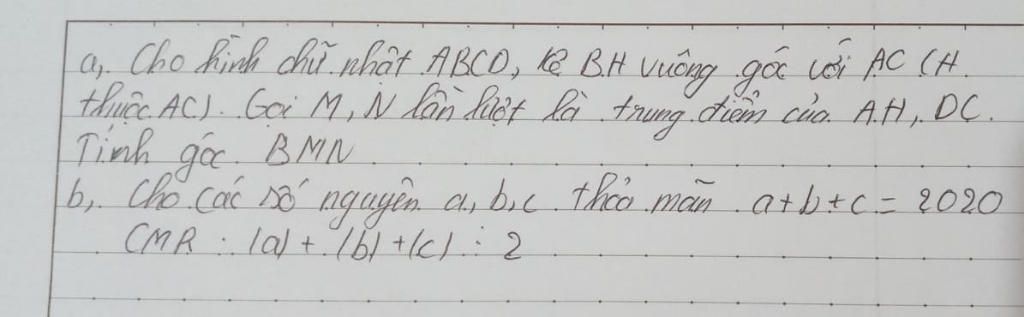 a, Cho hình chữ nhật ABCD, kẻ BH vuông góc với AC (H
thuộc AC). Gọi M, N lần lượt là trung điểm của AH, DC.
Tính góc BMN
b, Cho các số nguyên a, b, c thỏa mãn a+b+c = 2020
CMR : |a| + |b| + |c| ⋮ 2